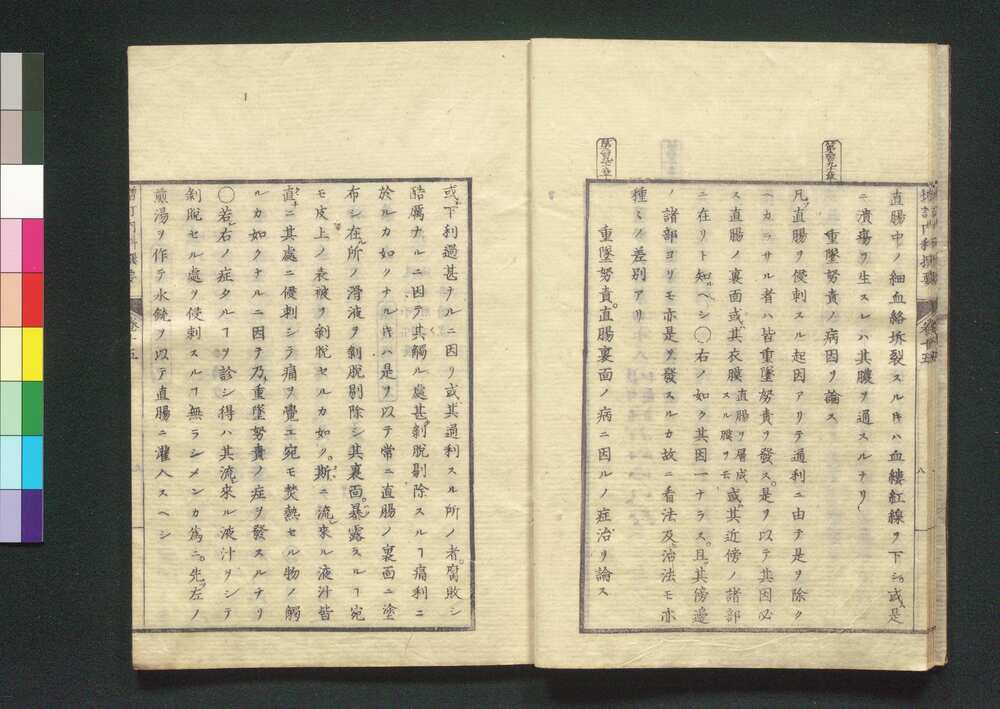 直腸中ノ細血絡拆裂スル𪜈ハ血縷紅線ヲ下シ或ハ是
ニ潰瘍ヲ生スレハ其膿ヲ通スルナリ
重墜努責ノ病因ヲ論ス
凡ソ直腸ヲ侵刺スル起因アリテ通利ニ由テ是ヲ除ク
ヘカラサル者ハ皆重墜努責ヲ發ス是ヲ以テ其因必
ス直腸ノ裏面或ハ其衣膜直腸ヲ層成スル膜ヲモ或ハ其近傍ノ諸部
ニ在リト知ヘシ〇右ノ如ク其因一ナラス且ツ其傍邊
ノ諸部ヨリモ亦是ヲ發スルカ故ニ看法及ヒ治法モ亦
種々ノ差別アリ
重墜努責直腸裏面ノ病ニ因ルノ症治ヲ論ス
或ハ下利過甚ナルニ因リ或ハ其通利スル所ノ者腐敗シ
酷厲ナルニ因テ其觸ル處甚ク剝脱剔除スルヿ痛利ニ
於ルカ如クナル𪜈ハ是ヲ以テ常ニ直腸ノ裏面ニ塗
布シ在ル所ノ滑液ヲ剝脱剔除シ其裏面暴露スルヿ宛
モ皮上ノ表被ヲ剝脱セルカ如ク斯ニ流來ル液汁皆
直ニ其處ニ侵刺シテ痛ヲ覺エ宛モ焚熱セル物ノ觸
ルカ如クナルニ因テ乃チ重墜努責ノ症ヲ發スルナリ
〇若シ右ノ症タルヿヲ診シ得ハ其流レ來ル液汁ヲシテ
剝脱セル處ヲ侵刺スルヿ無ラシメンカ爲ニ先ツ左ノ
煎湯ヲ作テ水銃ヲ以テ直腸ニ灌入スヘシ